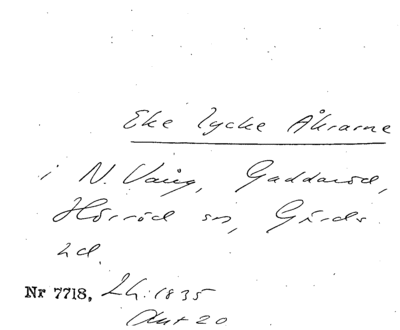 Eke lycke Åkrarne
i N. Vång, Gaddaröd,
Hörröd sn, Gärds
hd.
Nr 7718, Lh. 1835
Akt 20